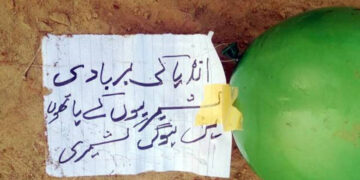 انڈیا کی بربادی
کشمیریوں کے ہاتھوں
ہوگی کشمیری